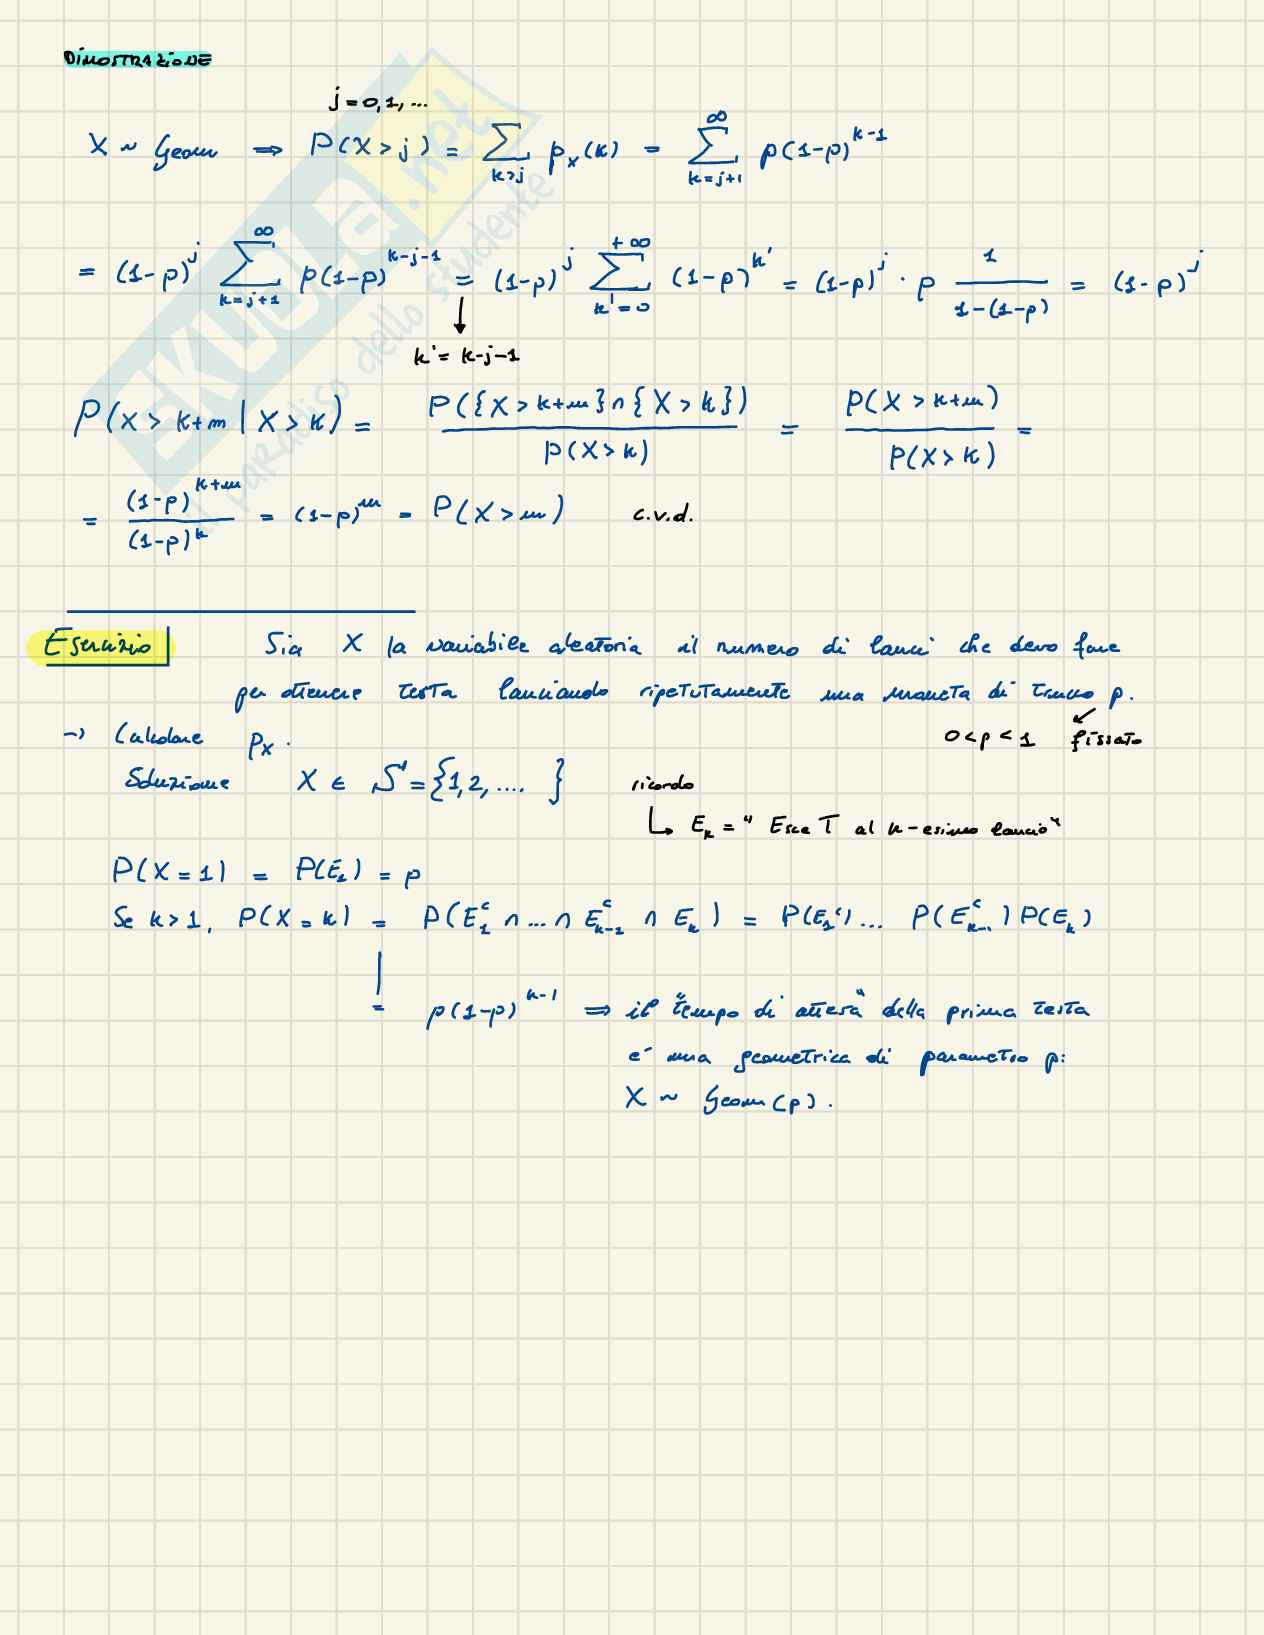 DIMOSTRAZIONE
j = 0, 1, ...
X ~ Geom ⟹ P(X > j) = ∑_{k>j} p_X(k) = ∑_{k=j+1}^{∞} p(1-p)^{k-1}
= (1-p)^j ∑_{k=j+1}^{∞} p(1-p)^{k-j-1} = (1-p)^j ∑_{k'=0}^{+∞} (1-p)^{k'} = (1-p)^j · p 1/(1-(1-p)) = (1-p)^j
↓
k' = k-j-1
P(X > k+m | X > k) = P({X > k+m} ∩ {X > k})/P(X > k) = P(X > k+m)/P(X > k) =
= (1-p)^{k+m}/(1-p)^k = (1-p)^m = P(X > m) c.v.d.
Esercizio Sia X la variabile aleatoria il numero di lanci che devo fare
per ottenere testa lanciando ripetutamente una moneta di trucco p.
→ Calcolare p_X. 0 < p < 1 fissato
Soluzione X ∈ S = {1, 2, ....} ricordo
↳ E_k = "Esce T al k-esimo lancio"
P(X = 1) = P(E_1) = p
Se k > 1, P(X = k) = P(E_1^c ∩ ... ∩ E_{k-1}^c ∩ E_k) = P(E_1^c) ... P(E_{k-1}^c) P(E_k)
= p(1-p)^{k-1} ⟹ il "tempo di attesa" della prima testa
é una geometrica di parametro p:
X ~ Geom(p).
SKUOLA.net
il paradiso dello studente